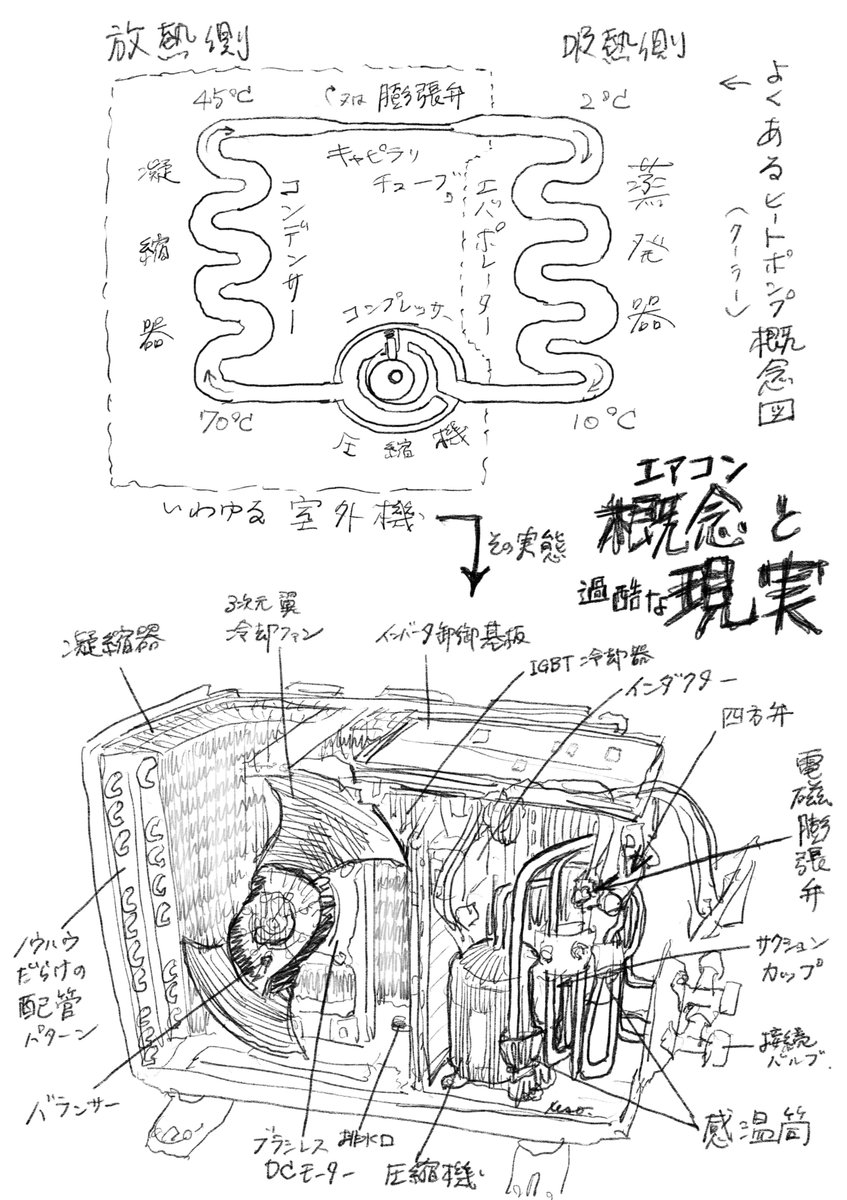 放熱側
吸熱側
よくあるヒートポンプ概念図
(クーラー)
45℃
又は 膨張弁
2℃
キャピラリ
チューブ
凝縮器
コンデンサー
エバポレーター
蒸発器
コンプレッサ
圧縮機
70℃
10℃
いわゆる 室外機
その実態
エアコン
概念と
過酷な現実
凝縮器
3次元翼
冷却ファン
インバータ制御基板
IGBT冷却器
インダクター
四方弁
電磁膨張弁
ノウハウ
だらけの
配管
パターン
サクション
カップ
接続
バルブ
バランサー
ブラシレス
DCモーター
排水口
圧縮機
感温筒